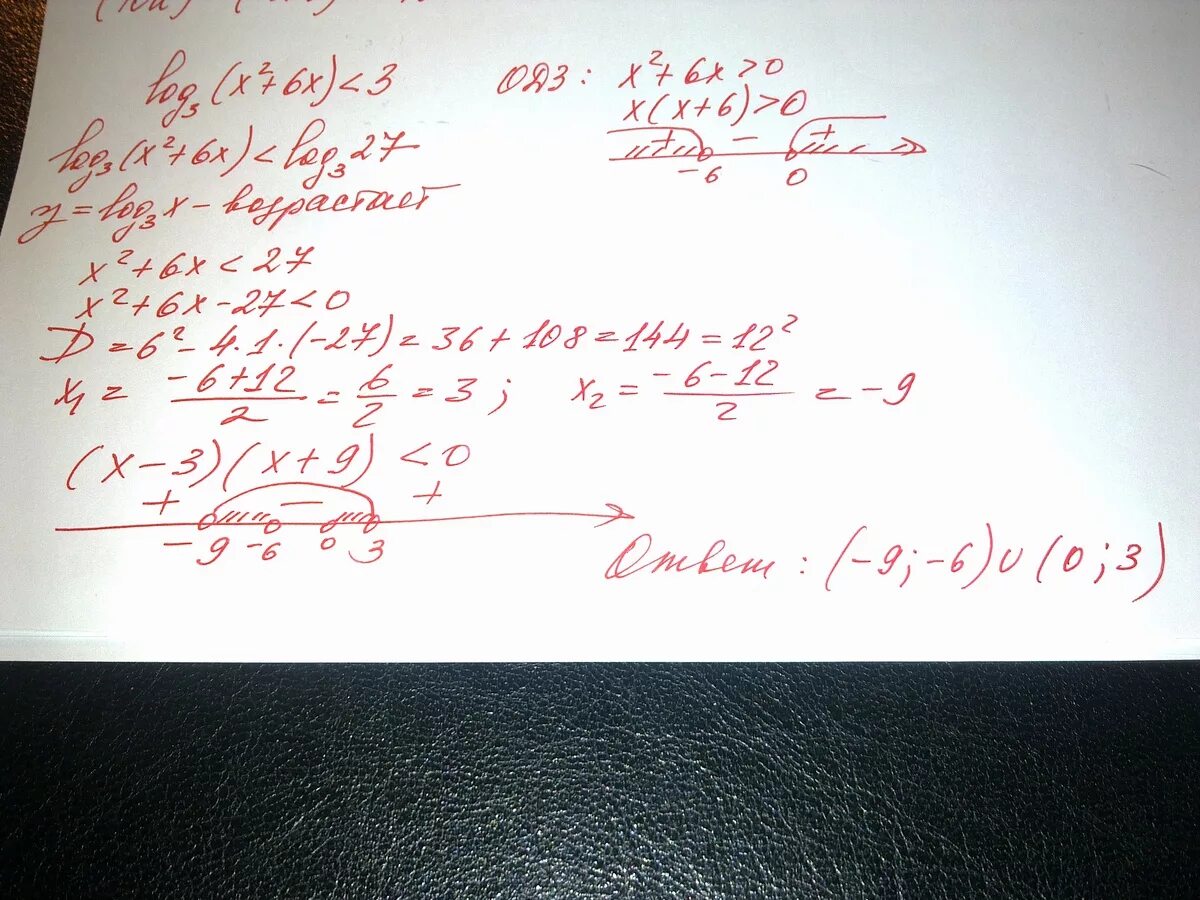 log₃(x²+6x)<3
ОДЗ: x²+6x>0
x(x+6)>0
+ − +
-6 0
log₃(x²+6x)<log₃27
y=log₃x – возрастает
x²+6x<27
x²+6x-27<0
D=6²-4·1·(-27)=36+108=144=12²
x₁=(-6+12)/2=6/2=3; x₂=(-6-12)/2=-9
(x-3)(x+9)<0
+ − +
-9 -6 0 3
Ответ: (-9;-6)∪(0;3)